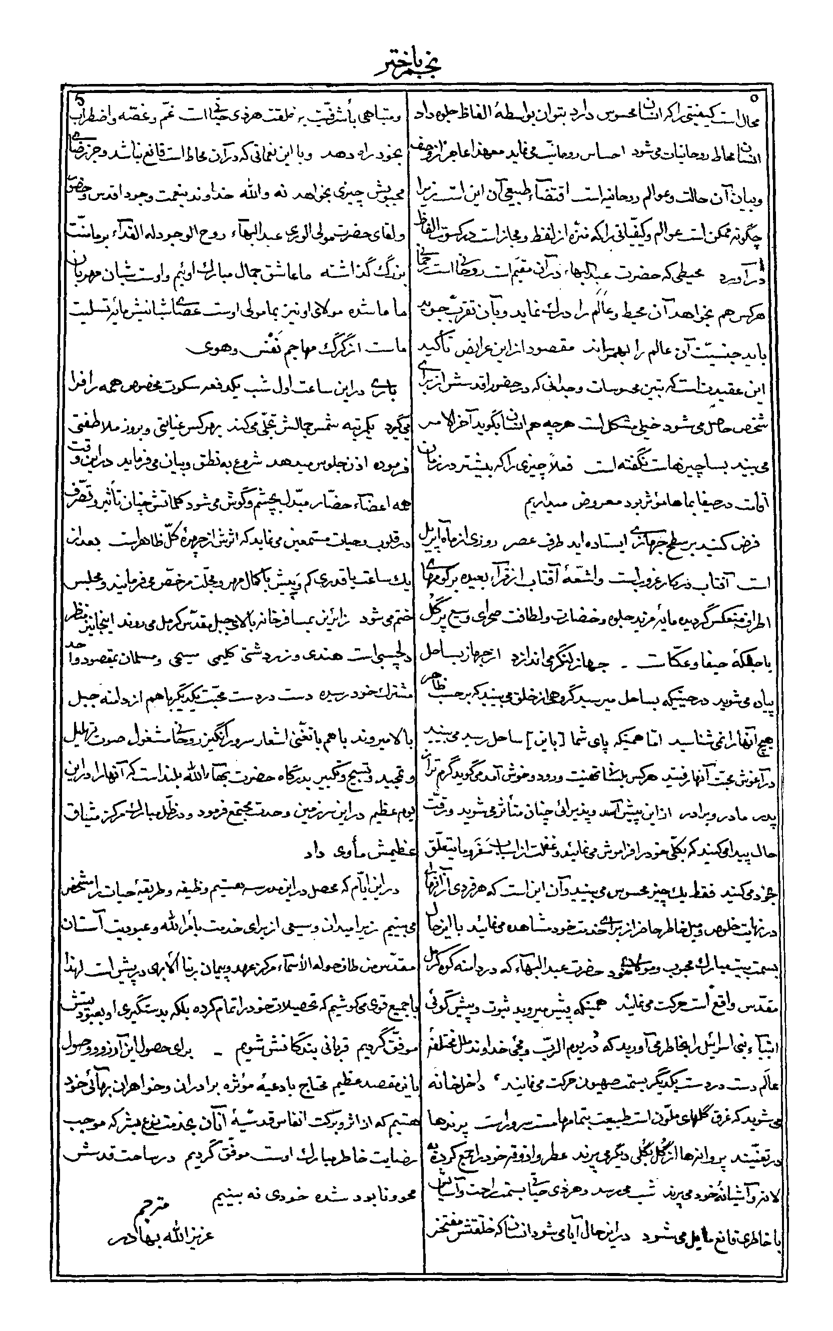 نجم باختر
۵
محال است کیفیتی را که انسان محسوس دارد بتوان بواسطهٔ الفاظ جلوه داد
انسان محاط روحانیات می‌شود احساس روحانیت می‌نماید معهذا عاجز از وصف
وبیان آن حالت وعوالم روحانیه است اقتضاء طبیعی آن این است زیرا
چگونه ممکن است عوالم وکیفیاتی را که منزه از لفظ ومجاز است در کسوت الفاظ
درآورد محیطی که حضرت عبدالبهاء در آن مقیم است روحانی است رحمانی
هرکس هم بخواهد آن محیط وعالم را درک نماید وبآن تقرب جوید
باید جنسیت آن عالم را بهمراند مقصود از این عرایض تأکید
این عقیده است که تبیین محسوسات وجدانی که در حضور اقدسش از برای
شخص حاصل می‌شود خیلی مشکل است هرچه هم انسان بگوید آخر الامر
می‌بیند بسا چیزهاست نگفته است فعلا چیزی را که بیشتر در زمان
اقامت در حیفا بما هامؤثر بود معروض میداریم
فرض کنید بر سطح جهازی ایستاده اید طرف عصر روزی از ماه اپریل
است آفتاب در کار غروبست واشعهٔ آفتاب از قراء بعیده بر کوههای
اطراف منعکس گردیده مایهٔ مزید جلوه وخضارت ولطافت صحرای وسیع پرگل
یا جلگهٔ حیفا وعکاست - جهاز لنگر می‌اندازد از جهاز بساحل
پیاده می‌شوید در حینیکه بساحل میرسید گروهی از خلق می‌بینید که بر حسب ظاهر
هیچ آنها را نمی‌شناسید اما همینکه پای شما [باین] ساحل رسید می‌بینید
در آغوش محبت آنها رفتید هرکس بشما تهنیت ورود وخوش آمد می‌گوید گرم‌تر از
پدر مادر وبرادر از این پیش آمد وپذیرائی چنان متأثر می‌شوید ورقت
حال پیدا می‌کنید که بکلی خود را فراموش می‌نمائید وغفلت از اسباب سفر وما یتعلق
بخود می‌کنید فقط یک چیز محسوس می‌بینید وآن این است که هر فردی از آنهای
در نهایت خلوص ومیل خاطر حاضر از برای خدمت خود مشاهده می‌نمائید با این حال
بسمت بیت مبارک محبوب ومولای خود حضرت عبد البهاء که در دامنه کوه کرمل
مقدس واقع است حرکت می‌نمائید همینکه پیش میروید نبوت وپیش گوئی
انبیاء بنی اسرائیل را بخاطر می‌آورید که (در یوم الرب ومجئ خداوند ملل مختلفهٔ
عالم دست در دست یکدیگر بسمت صهیون حرکت می‌نمایند) داخل خانه
می‌شوید که غرق گلهای ملون است طبیعت بتمامها مست سرور است پرندها
در تغنیند پروانه‌ها از گل بگلی دیگر می‌پرند عطر واذوقه خود را جمع کرده به
لانه وآشیانهٔ خود می‌پرند شب می‌رسد وهرذی حیاتی بسمت راحت وآسایش
با خاطری قانع مایل می‌شود در این حال آیا می‌شود انسان که خلقتش مفتخر
5
ومتباهی بأشرفیت به خلقت هرذی حیاتی است غم وغصه واضطراب
بخود راه دهد وبا این نعمائی که در آن محاط است قانع نباشد وجز رضای
محبوبش چیزی بخواهد نه والله خداوند بنعمت وجود اقدس وحضور
ولقای حضرت مولی الوری عبد البهاء روح الوجود له الفداء بر ما منت
بزرگ گذاشته ما عاشق جمال مبارک اوئیم واوست شبان مهربان
ما ما شده مولای او نیز بما مولی اوست عصای شبانیش مایهٔ تسلیت
ماست از گرگ مهاجم نفس وهوی
باری در این ساعت اول شب یکدفعه سکوت مخصوص همه را فرا
میگیرد یکمرتبه شمس جمالش تجلی می‌کند بهر کس عنایتی وبروز ملاطفتی
فرموده اذن جلوس میدهد شروع به نطق وبیان می‌فرماید در این وقت
همه اعضاء حضار مبدل بچشم وگوش می‌شود کلماتش چنان تأثیر وتصرف
در قلوب وحیات مستمعین می‌نماید که اثرش از چهرهٔ کل ظاهر است بعد از
یک ساعت یا قدری کم وبیش با کمال مهر ومحبت مرخص می‌فرمایند ومجلس
ختم می‌شود زائرین بمسافرخانه بالای جبل مقدس کرمل می‌روند اینجا نیز منظر
دلچسبی است هندی وزردشتی کلیمی مسیحی ومسلمان بمقصود واحد
مشترک خود رسیده دست در دست محبت یکدیگر با هم از دامنه جبل
بالا میروند با هم با تغنی اشعار سرور انگیز روحانی مشغول صوت تهلیل
وتمجید وتسبیح وتکبیر بدرگاه حضرت بهاءالله بلند است که آنها را در این
یوم عظیم در این سرزمین وحدت مجتمع فرمود ودر ظل مبارک مرکز میثاق
عظیمش مأوی داد
در این ایام که محصل در این مدرسه هستیم وظیفه وطریقهٔ حیات را مشخص
می‌بینیم زیرا میدان وسیعی از برای خدمت بأمرالله وعبودیت آستان
مقدس من طاف حوله الأسماء مرکز عهد وپیمان ربنا الأبهی در پیش است لهذا
با جمیع قوی می‌کوشیم که تحصیلات خود را تمام کرده بلکه بدستگیری او بعبودیتش
موفق گردیم قربانی بندگانش شویم - برای حصول این آرزو ووصول
باین مقصد عظیم محتاج بادعیهٔ مؤثره برادران وخواهران بهائی خود
هستیم که از اثر وبرکت انفاس قدسیهٔ آنان بخدمت نوع بشر که موجب
رضایت خاطر مبارک اوست موفق گردیم در ساحت قدسش
محو ونابود شده خودی نه بینیم
مترجم
عزیزالله بهادر